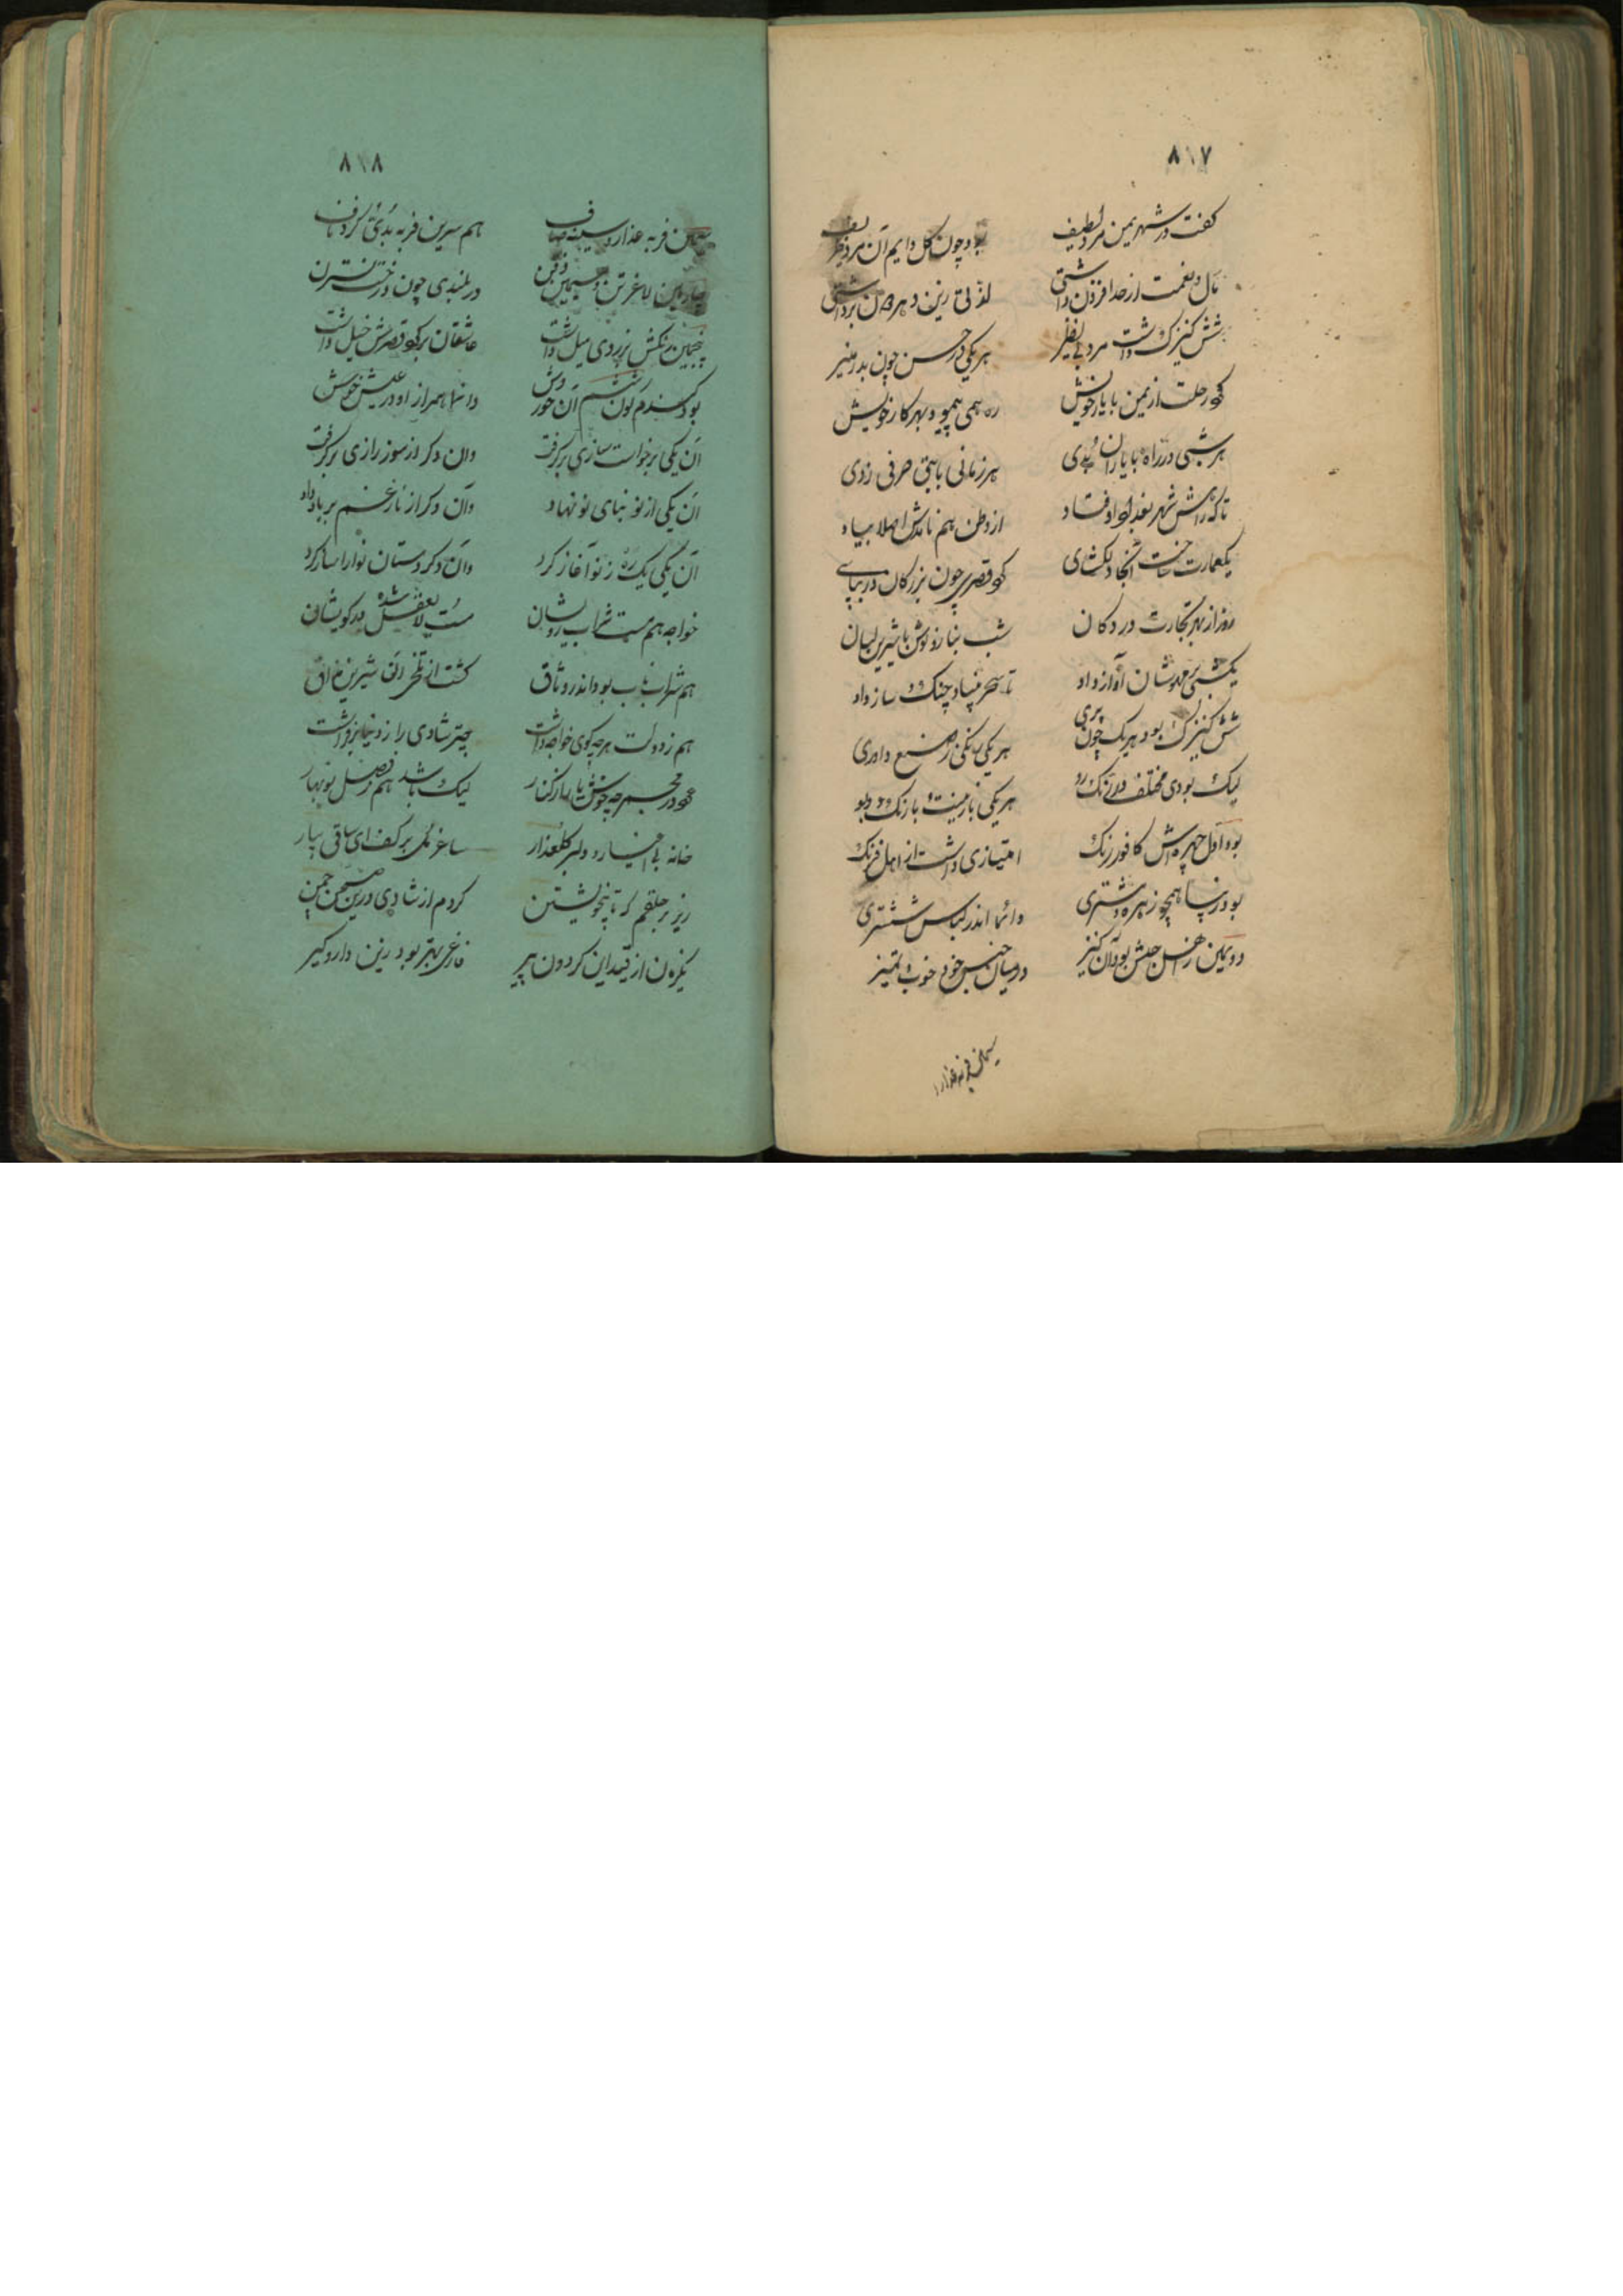 ۸۱۷
گفت در شهر یمن مرد لطیف بود چون گل دایم آن مرد ظریف
مال و نعمت از حد افزون داشتی لذتی زین دهر دون برداشتی
شش کنیزک داشت مرد بی نظیر هر یکی در حسن چون بدر منیر
کرد رحلت از یمن با یار خویش ره همی پیمود بهر کار خویش
هر شبی در راه با یاران بدی هر زمانی با بتی حرفی زدی
تا که راهش شهر بغداد اوفتاد از وطن هم نامدش اصلا بیاد
یکعمارت ساخت آنجا دلکشای کو قصری چون بزرگان در بپای
روز از بهر تجارت در دکان شب بناز و نوش با شیرین لبان
یکشبی شان آواز داد تا سحر چنک و ساز داد
شش کنیزک بود هر یک چون پری هر یکی رنگی ز صنع داوری
لیک بودی مختلف در رنگ رو هر یکی با زینت و با رنگ و بو
بود اول چهره اش کافور رنگ امتیازی داشت از اهل فرنگ
بود زیبا همچو زهره مشتری دائما اندر لباس ششتری
دویمین از جنس حبش بود آن کنیز در میان جنس خود خوب و تمیز
سیمین فربه عذار و
۸۱۸
سیمین فربه عذار و سینه صاف هم سرین فربه بدی گرد ناف
چارمین لاغر تن و سیمین ذقن در بلندی چون درخت نسترن
پنجمین رنگش بزردی میل داشت عاشقان بر کو قصرش خیل داشت
بود گندم لون ششم آن حور وش دائما همراز او در عیش خوش
آن یکی برخواست سازی برگرفت وان دگر از سوز رازی برگرفت
آن یکی از نو بنای نو نهاد وان دگر از ناز غم بر باد داد
آن یکی یک ره ز نو آغاز کرد وان دگر دستان نوا را ساز کرد
خواجه هم مست شراب رویشان مست لا یعقل شده در کویشان
هم شراب ناب بود اندر وثاق گشت از تلخی آن شیرین مذاق
هم ز دولت هر چه گوی خواجه داشت چتر شادی را ز دنیا برفراشت
عود در مجمر چه خوش با یار در کنار لیک باشد هم فصل نوبهار
خانه بی اغیار و دلبر گلعذار ساغر مل بر کف ای ساقی بیار
ریز بر حلقم که تا بیخویشتن گردم از شادی درین صحن چمن
یکزمان از قید این گردون پیر فارغی بهتر بود زین دار و گیر